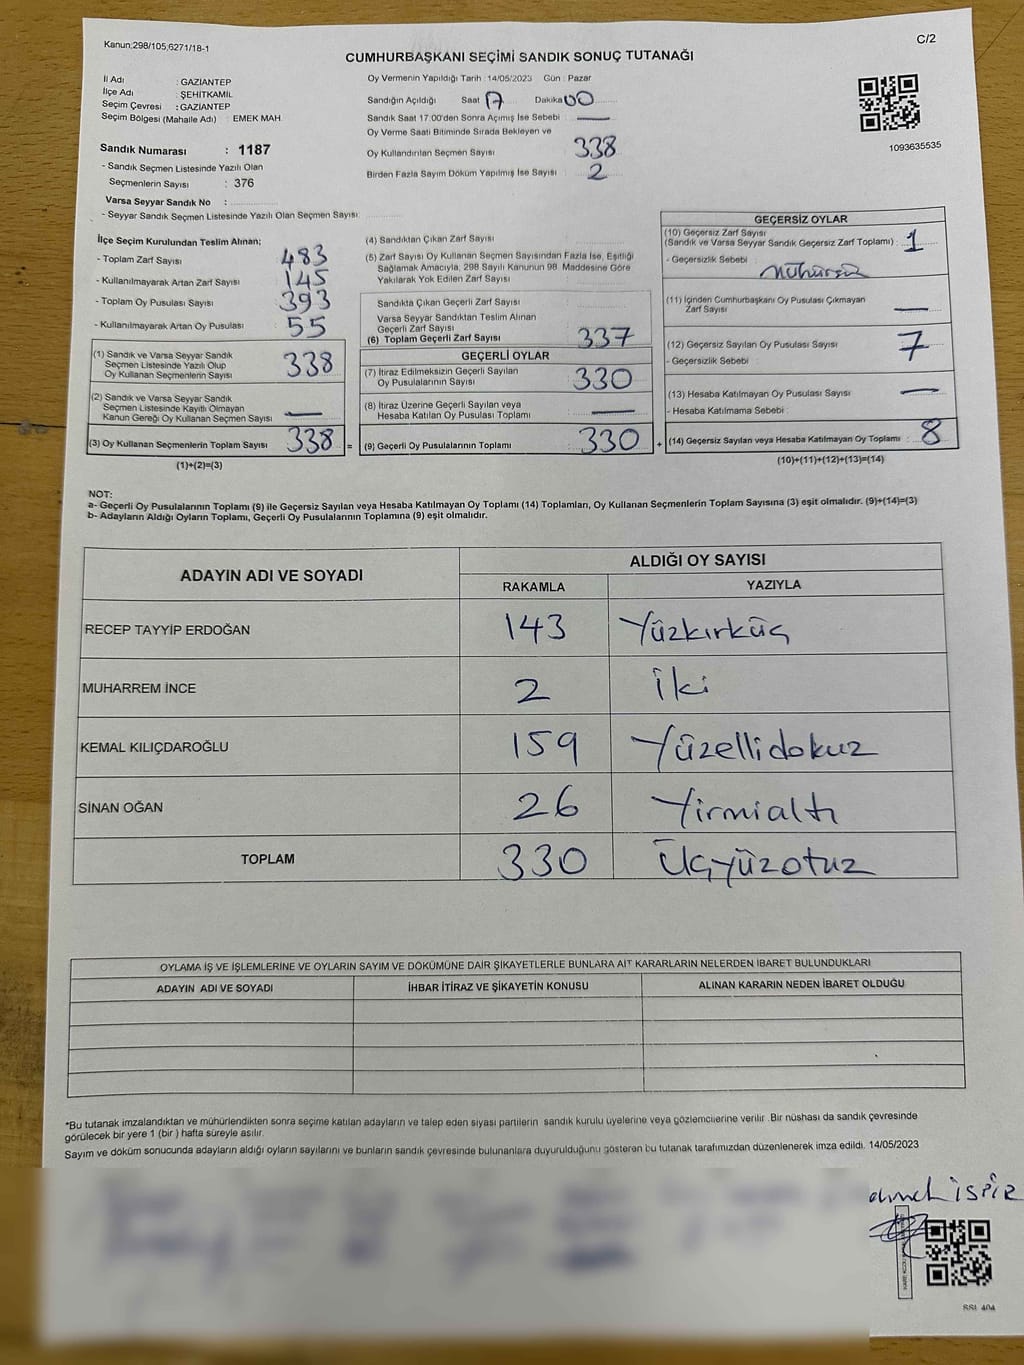 Kanun;298/105;6271/18-1
C/2
CUMHURBAŞKANI SEÇİMİ SANDIK SONUÇ TUTANAĞI
İl Adı : GAZIANTEP
İlçe Adı : ŞEHİTKAMİL
Seçim Çevresi : GAZIANTEP
Seçim Bölgesi (Mahalle Adı) : EMEK MAH.
Sandık Numarası : 1187
- Sandık Seçmen Listesinde Yazılı Olan
Seçmenlerin Sayısı : 376
Varsa Seyyar Sandık No :
- Seyyar Sandık Seçmen Listesinde Yazılı Olan Seçmen Sayısı:
Oy Vermenin Yapıldığı Tarih : 14/05/2023 Gün : Pazar
Sandığın Açıldığı Saat 17 Dakika 00
Sandık Saat 17:00'den Sonra Açımış İse Sebebi : —
Oy Verme Saati Bitiminde Sırada Bekleyen ve
Oy Kullandırılan Seçmen Sayısı : 338
Birden Fazla Sayım Döküm Yapılmış İse Sayısı : 2
1093635535
İlçe Seçim Kurulundan Teslim Alınan;
- Toplam Zarf Sayısı : 483
- Kullanılmayarak Artan Zarf Sayısı : 145
- Toplam Oy Pusulası Sayısı : 393
- Kullanılmayarak Artan Oy Pusulası : 55
(1) Sandık ve Varsa Seyyar Sandık
Seçmen Listesinde Yazılı Olup
Oy Kullanan Seçmenlerin Sayısı : 338
(2) Sandık ve Varsa Seyyar Sandık
Seçmen Listesinde Kayıtlı Olmayan
Kanun Gereği Oy Kullanan Seçmen Sayısı : —
(3) Oy Kullanan Seçmenlerin Toplam Sayısı : 338 =
(1)+(2)=(3)
(4) Sandıktan Çıkan Zarf Sayısı :
(5) Zarf Sayısı Oy Kullanan Seçmen Sayısından Fazla İse, Eşitliği
Sağlamak Amacıyla, 298 Sayılı Kanunun 98. Maddesine Göre
Yakılarak Yok Edilen Zarf Sayısı :
Sandıkta Çıkan Geçerli Zarf Sayısı :
Varsa Seyyar Sandıktan Teslim Alınan
Geçerli Zarf Sayısı :
(6) Toplam Geçerli Zarf Sayısı : 337
GEÇERLİ OYLAR
(7) İtiraz Edilmeksizin Geçerli Sayılan
Oy Pusulalarının Sayısı : 330
(8) İtiraz Üzerine Geçerli Sayılan veya
Hesaba Katılan Oy Pusulası Toplamı : —
(9) Geçerli Oy Pusulalarının Toplamı : 330 +
GEÇERSİZ OYLAR
(10) Geçersiz Zarf Sayısı
(Sandık ve Varsa Seyyar Sandık Geçersiz Zarf Toplamı) : 1
- Geçersizlik Sebebi : Mühürsüz
(11) İçinden Cumhurbaşkanı Oy Pusulası Çıkmayan
Zarf Sayısı : —
(12) Geçersiz Sayılan Oy Pusulası Sayısı : 7
- Geçersizlik Sebebi :
(13) Hesaba Katılmayan Oy Pusulası Sayısı : —
- Hesaba Katılmama Sebebi :
(14) Geçersiz Sayılan veya Hesaba Katılmayan Oy Toplamı : 8
(10)+(11)+(12)+(13)=(14)
NOT:
a- Geçerli Oy Pusulalarının Toplamı (9) ile Geçersiz Sayılan veya Hesaba Katılmayan Oy Toplamı (14) Toplamları, Oy Kullanan Seçmenlerin Toplam Sayısına (3) eşit olmalıdır. (9)+(14)=(3)
b- Adayların Aldığı Oyların Toplamı, Geçerli Oy Pusulalarının Toplamına (9) eşit olmalıdır.
ADAYIN ADI VE SOYADI
ALDIĞI OY SAYISI
RAKAMLA YAZIYLA
RECEP TAYYİP ERDOĞAN 143 Yüzkırküç
MUHARREM İNCE 2 İki
KEMAL KILIÇDAROĞLU 159 Yüzellidokuz
SİNAN OĞAN 26 Yirmialtı
TOPLAM 330 Üçyüzotuz
OYLAMA İŞ VE İŞLEMLERİNE VE OYLARIN SAYIM VE DÖKÜMÜNE DAİR ŞİKAYETLERLE BUNLARA AİT KARARLARIN NELERDEN İBARET BULUNDUKLARI
ADAYIN ADI VE SOYADI İHBAR İTİRAZ VE ŞİKAYETİN KONUSU ALINAN KARARIN NEDEN İBARET OLDUĞU
*Bu tutanak imzalandıktan ve mühürlendikten sonra seçime katılan adayların ve talep eden siyasi partilerin sandık kurulu üyelerine veya gözlemcilerine verilir .Bir nüshası da sandık çevresinde
görülecek bir yere 1 (bir ) hafta süreyle asılır.
Sayım ve döküm sonucunda adayların aldığı oyların sayılarını ve bunların sandık çevresinde bulunanlara duyurulduğunu gösteren bu tutanak tarafımızdan düzenlenerek imza edildi. 14/05/2023
ahmet İSPİR
SSI_404